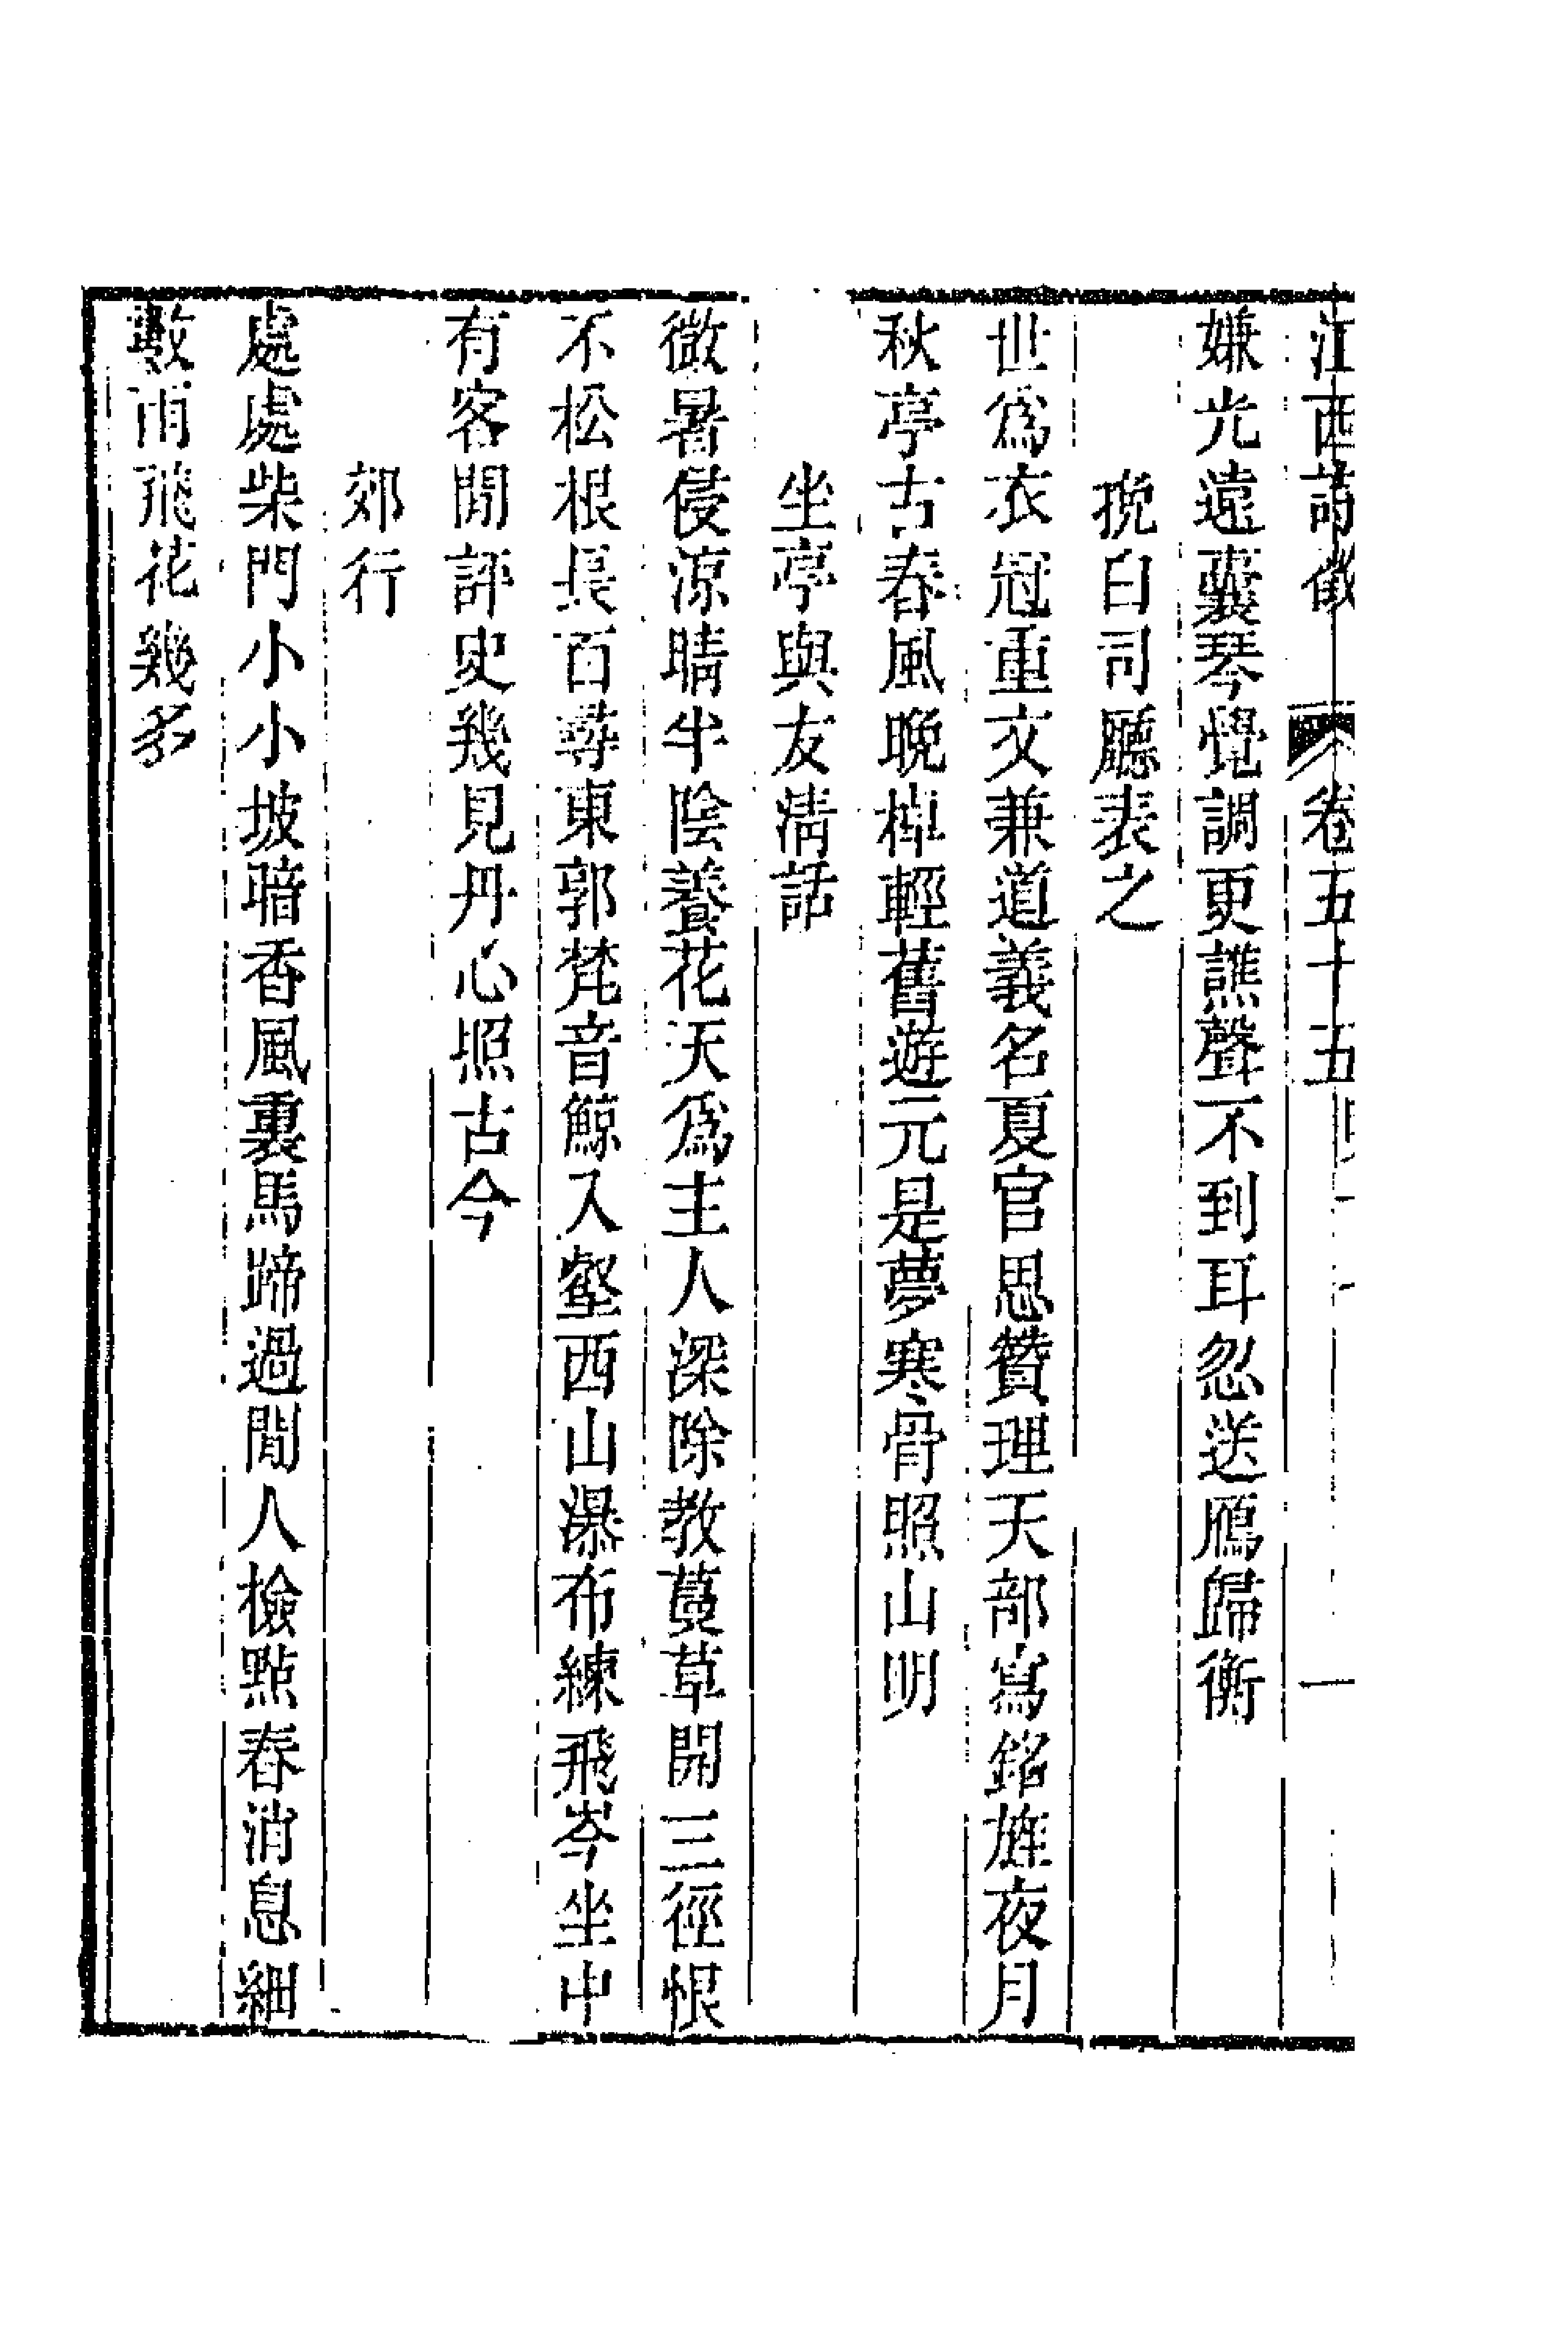 江西詩徵
卷五十五
嫌光遠囊琴覺調更譙聲不到耳忽送鴈歸衡
挽白司廳表之
世爲衣冠重文兼道義名夏官思贊理天部寫銘旌夜月
秋亭古春風晚棹輕舊遊元是夢寒骨照山明
坐亭與友淸話
微暑侵涼晴半陰養花天爲主人深除教蔓草開三徑恨
不松根長百尋東郭梵音鯨入壑西山瀑布練飛岑坐中
有客閒評史幾見丹心照古今
郊行
處處柴門小小坡暗香風裏馬蹄過閒人檢點春消息細
數雨飛花幾多